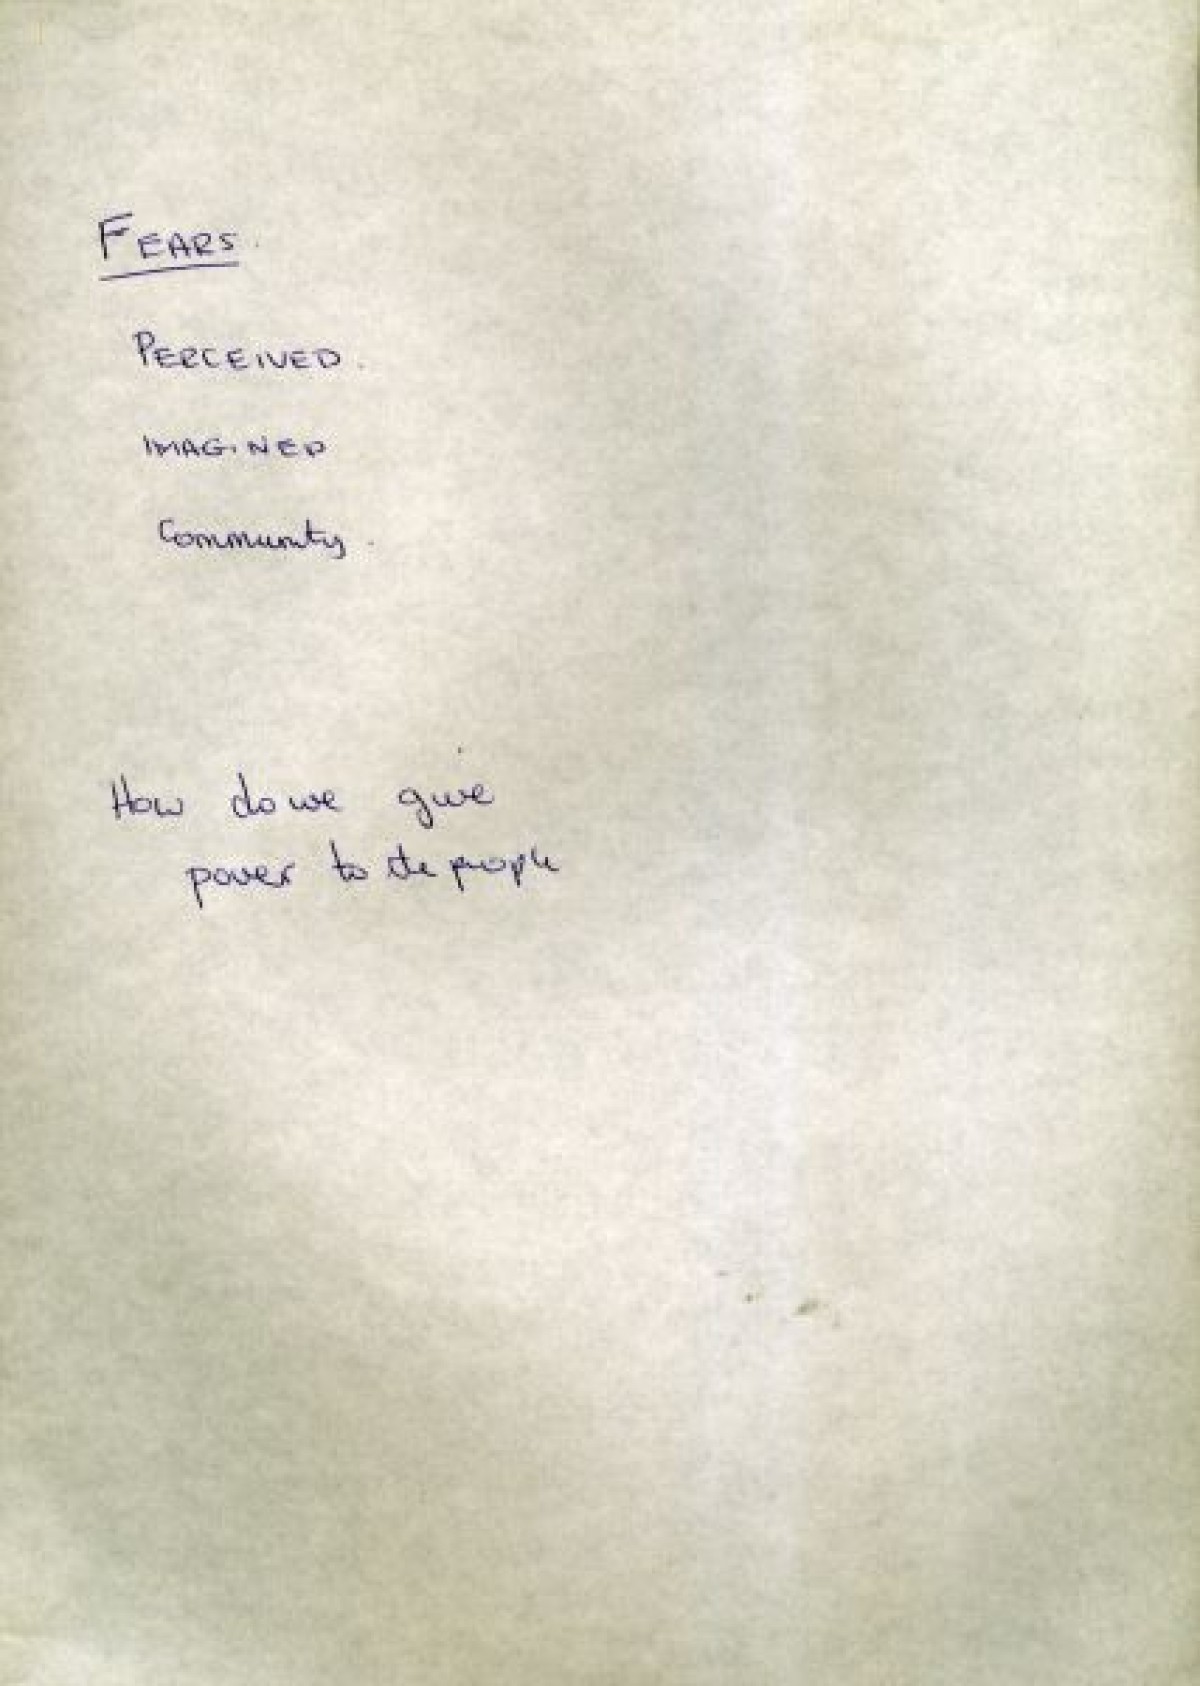 FEARS.
PERCEIVED.
IMAGINED
Community.
How do we give
power to the people